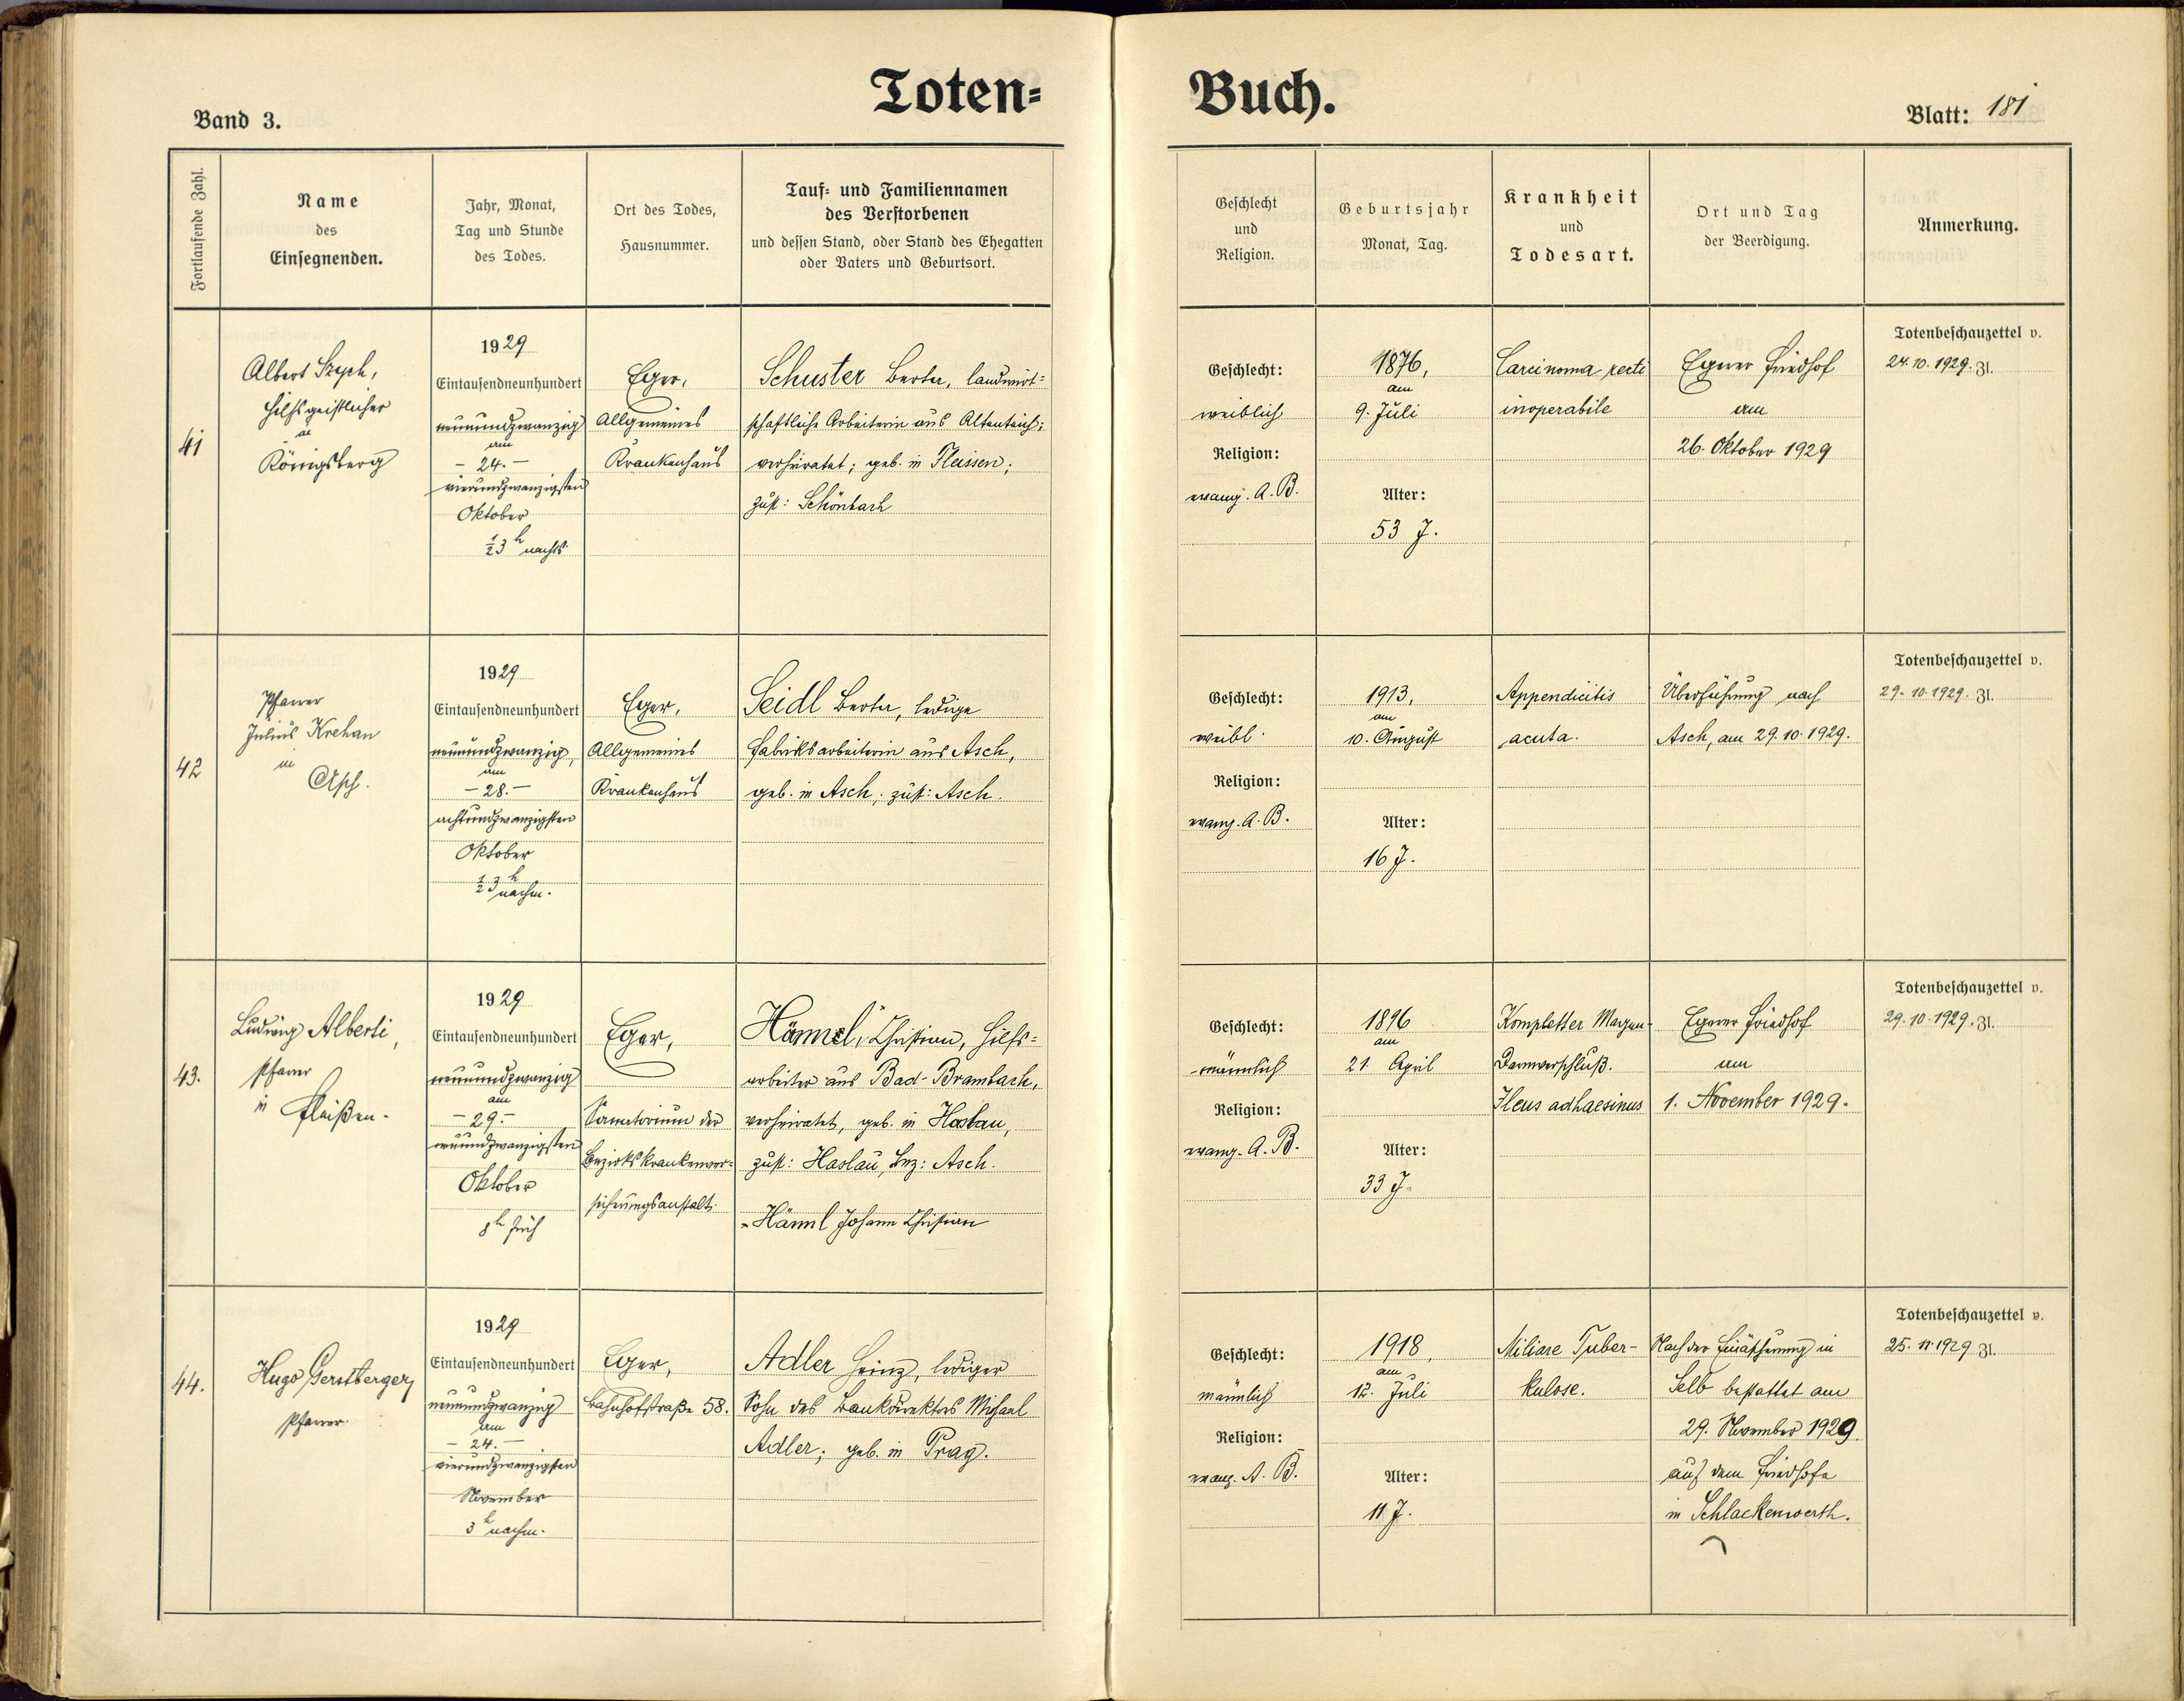 Toten=
Buch.
Band 3.
Blatt: 181
Fortlaufende Zahl.
Name
des
Einsegnenden.
Jahr, Monat,
Tag und Stunde
des Todes.
Ort des Todes,
Hausnummer.
Tauf= und Familiennamen
des Verstorbenen
und dessen Stand, oder Stand des Ehegatten
oder Vaters und Geburtsort.
Geschlecht
und
Religion.
Geburtsjahr
Monat, Tag.
Krankheit
und
Todesart.
Ort und Tag
der Beerdigung.
Anmerkung.
41
Albert
Hilfsgeistlicher
in
Königsberg
1929
Eintausendneunhundert
neunundzwanzig
am
- 24. -
vierundzwanzigsten
Oktober
½3 h nachts
Eger,
Allgemeines
Krankenhaus
Schuster Berta, landwirt=
schaftliche Arbeiterin aus Altenteich;
verheiratet; geb. in Fleissen;
zust: Schönbach
Geschlecht:
weiblich
Religion:
evang. A. B.
1876,
am
9. Juli
Alter:
53 J.
Carcinoma recti
inoperabile
Egerer Friedhof
am
26. Oktober 1929
Totenbeschauzettel v.
24.10.1929. Zl.
42
Pfarrer
Julius Krehan
in
Asch.
1929
Eintausendneunhundert
neunundzwanzig,
am
- 28. -
achtundzwanzigsten
Oktober
½3 h nachm.
Eger,
Allgemeines
Krankenhaus
Seidl Berta, ledige
Fabriksarbeiterin aus Asch,
geb. in Asch; zust: Asch.
Geschlecht:
weibl.
Religion:
evang. A. B.
1913,
am
10. August
Alter:
16 J.
Appendicitis
acuta.
Überführung nach
Asch, am 29.10.1929.
Totenbeschauzettel v.
29.10.1929. Zl.
43.
Ludwig Alberti,
Pfarrer
in Fleißen.
1929
Eintausendneunhundert
neunundzwanzig
am
- 29. -
neunundzwanzigsten
Oktober
8h früh
Eger,
Sanatorium der
Bezirkskrankenver=
sicherungsanstalt.
Hämel, Christian, Hilfs=
arbeiter aus Bad-Brambach,
verheiratet, geb. in Haslau,
zust: Haslau, Bez: Asch.
Johann Christian
Geschlecht:
männlich
Religion:
evang. A. B.
1896
am
21. April
Alter:
33 J.
Kompletter Magen-
Darmverschluß.
Ileus adhaesinus
Egerer Friedhof
am
1. November 1929.
Totenbeschauzettel v.
29.10.1929. Zl.
44.
Hugo Gerstberger,
Pfarrer
1929
Eintausendneunhundert
neunundzwanzig
am
- 24. -
vierundzwanzigsten
November
3 h nachm.
Eger,
Bahnhofstraße 58.
Adler Heinz, lediger
Sohn des Bankdirektors Michael
Adler; geb. in Prag.
Geschlecht:
männlich
Religion:
evang. A. B.
1918,
am
12. Juli
Alter:
11 J.
Miliare Tuber-
kulose.
Nach der Einäscherung in
Selb bestattet am
29. November 1929
auf dem Friedhofe
in Schlackenwerth.
Totenbeschauzettel v.
25.11.1929 Zl.